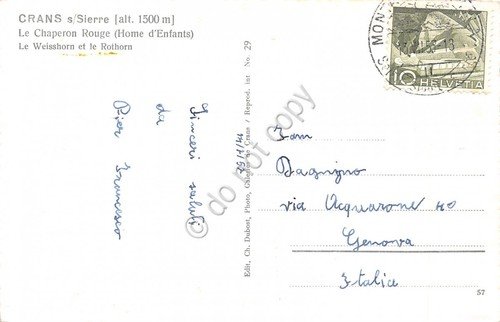 CRANS s/Sierre [alt. 1500 m]
Le Chaperon Rouge (Home d'Enfants)
Le Weisshorn et le Rothorn
Sinceri saluti
da
Pier Francesco
Edit. Ch. Dubost, Photo, Galeries de Crans / Reprod. int No. 29
do not copy
10 HELVETIA
MONTANA
Fam
Bagnigno
via Acquarone 40
Genova
Italia
57